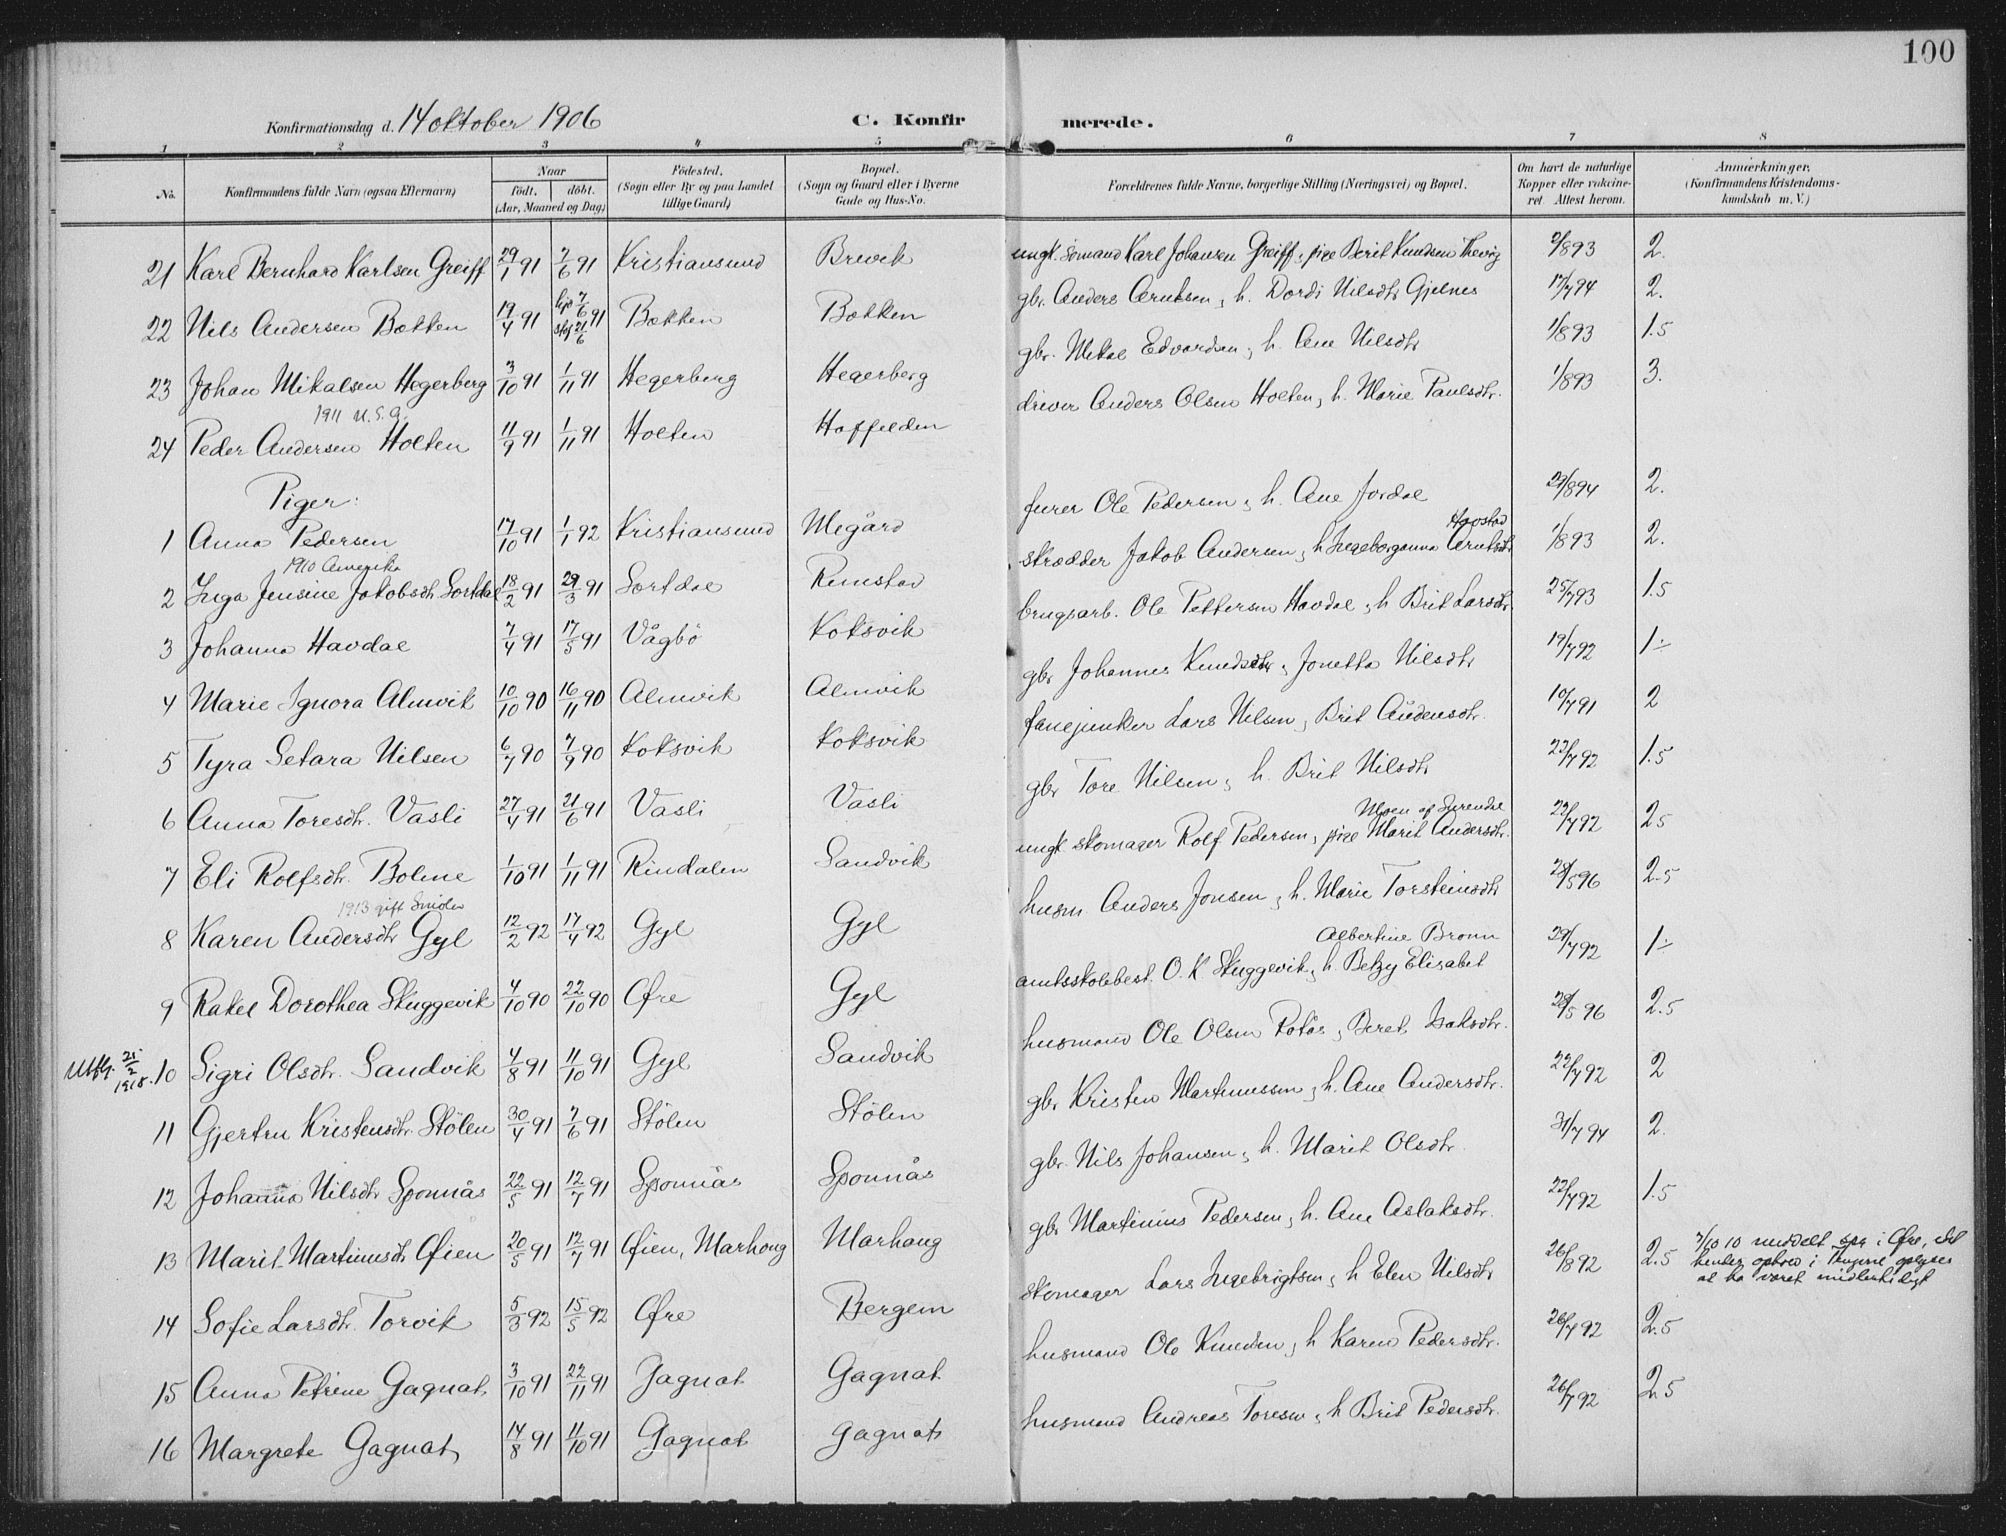 100
Konfirmationsdag d. 14 oktober 1906 C. Konfirmerede.
1 2 3 4 5 6 7 8
No. Konfirmandens fulde Navn (ogsaa Efternavn) Naar födt. döbt. (Aar, Maaned og Dag) Födested. (Sogn eller By og paa Landet tillige Gaard) Bopæl. (Sogn og Gaard eller i Byerne Gade og Hus-No. Forældrenes fulde Navne, borgerlige Stilling (Næringsvei) og Bopæl. Om havt de naturlige Kopper eller vakcineret Attest herom. Anmærkninger, (Konfirmandens Kristendomskundskab m. V.)
21 Karl Bernhard Karlsen Greiff 29/1 91 7/6 91 Kristiansund Brevik ungk. sömand Karl Johansen Greiff, pige Berit Knudsen 893 2.
22 Nils Andersen Bækken 19/4 91 hjd 7/6 91 stf 21/6 Bækken Bækken gbr. Anders Arntsen, h. Dordi Nilsdtr Gjelnes 17/7 94 2.
23 Johan Mikalsen Hegerberg 3/10 91 1/11 91 Hegerberg Hegerberg gbr. Mikal Edvardsen, h. Ane Nilsdtr 1/8 93 1.5
1911 U.S.A.
24 Peder Andersen Holten 11/9 91 1/11 91 Holten Hoffelden driver Anders Olsen Holten, h. Marie Paulsdtr. 1/8 93 3.
Piger:
1 Anna Pedersen 17/10 91 1/1 92 Kristiansund Megård furer Ole Pedersen, h. Ane Jordal 29/8 94 2.
1910 Amerika
Havstad
2 Inga Jensine Jakobsdtr Sortdal 18/2 91 29/3 91 Sortdal Rimstad skrædder Jakob Andersen, h. Ingeborganna Arntsdtr 1/8 93 2.
3 Johanna Havdal 7/4 91 17/5 91 Vågbö Koksvik brugsarb. Ole Pettersen Havdal, h Brit Larsdtr. 25/7 93 1.5
4 Marie Ignora Almvik 10/10 90 16/11 90 Almvik Almvik gbr Johannes Knudsen, Jonetta Nilsdtr 19/7 92 1÷
5 Tyra Setara Nilsen 6/7 90 7/9 90 Koksvik Koksvik fanejunker Lars Nilsen, Brit Audensdtr. 10/7 91 2
6 Anna Toresdtr. Vasli 27/4 91 21/6 91 Vasli Vasli gbr Tore Nilsen, h. Brit Nilsdtr 22/7 92 1.5
Moen af Surendal
7 Eli Rolfsdtr. Bolme 1/10 91 1/11 91 Rindalen Sandvik ungk skomager Rolf Pedersen, pige Marit Andersdtr. 22/7 92 25
1913 gift Smöla
8 Karen Andersdtr Gyl 12/2 92 17/4 92 Gyl Gyl husm Anders Jonsen, h. Marie Torsteinsdtr 28/5 96 2.5
Albertine Bronn
9 Rakel Dorothea Skuggevik 4/10 90 22/10 90 Øfre Gyl amtsskolebest. O. K Skuggevik, h. Betzy Elisabet 29/7 92 1÷
Utfl. 25/2 1918. 10 Sigri Olsdtr. Sandvik 4/8 91 11/10 91 Gyl Sandvik husmand Ole Olsen Rotås, Beret Isaksdtr. 28/5 96 2.5
11 Gjertru Kristensdtr. Stölen 30/4 91 7/6 91 Stölen Stölen gbr Kristen Martinussen, h. Ane Andersdtr. 22/7 92 2
12 Johanna Nilsdtr Sponnås 22/5 91 12/7 91 Sponnås Sponnås gbr. Nils Johansen, h. Marit Olsdtr. 31/7 94 2.
13 Marit Martinusdtr Øien 20/5 91 12/7 91 Øien, Marhaug Marhaug gbr Martinius Pedersen, h. Ane Aslaksdtr. 22/7 92 1.5
14 Sofie Larsdtr. Torvik 5/3 92 15/5 92 Øfre Bergem skomager Lars Ingebrigtsen, h Elen Nilsdtr 26/8 92 2.5 7/10 10 meddelt i Øfre, det hendes ophold i oplyses at ha været midlertidigt
15 Anna Petrine Gagnat 3/10 91 22/11 91 Gagnat Gagnat husmand Ole Knudsen, h Karen Pedersdtr. 26/7 92 2.5
16 Margrete Gagnat 14/8 91 11/10 91 Gagnat Gagnat husmand Andreas Toresen, h Brit Pedersdtr. 26/7 92 2.5